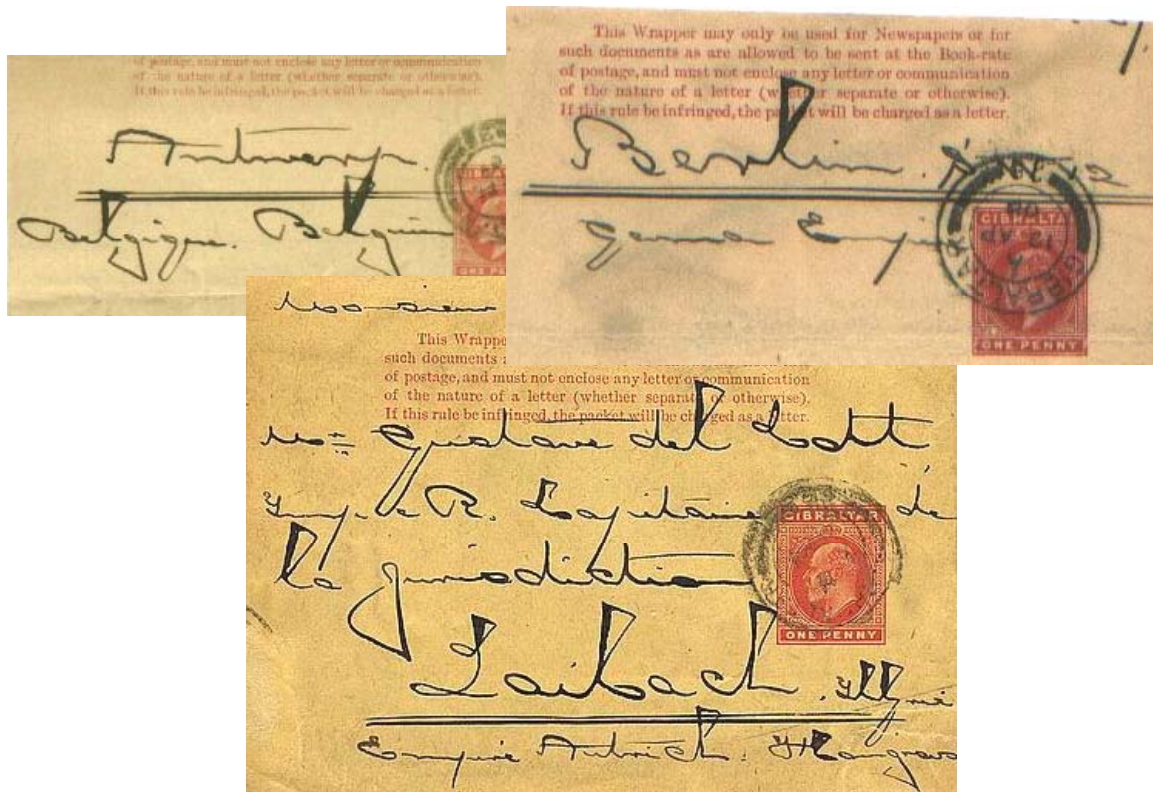 of postage, and must not enclose any letter or communication
of the nature of a letter (whether separate or otherwise).
If this rule be infringed, the packet will be charged as a letter.
Antwerp.
Belgique. Belgium
ONE PE
This Wrapper may only be used for Newspapers or for
such documents as are allowed to be sent at the Book-rate
of postage, and must not enclose any letter or communication
of the nature of a letter (whether separate or otherwise).
If this rule be infringed, the packet will be charged as a letter.
Berlin. N.W. 12
German Empire
GIBRALTAR
12 AP
GIBRALTA
ONE PENNY
Monsieur
This Wrappe
such documents
of postage, and must not enclose any letter or communication
of the nature of a letter (whether separate or otherwise).
If this rule be infringed, the packet will be charged as a letter.
Gustave del Cott
R. Capitaine de
la jurisdiction
GIBRALTAR
ONE PENNY
Laibach. Illyrie
Empire Autrich. Hongrois